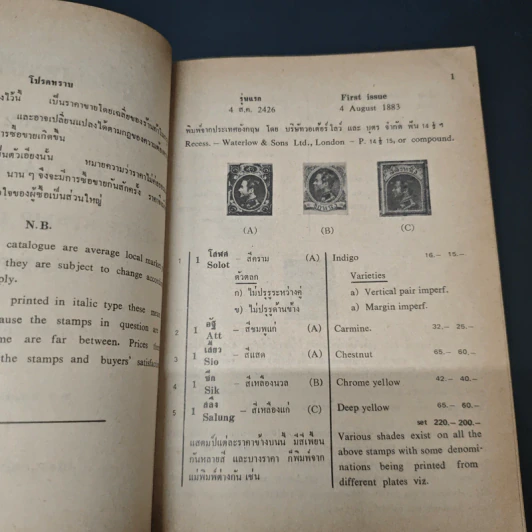 โปรดทราบ
งไว้นี้ เป็นราคาขายโดยเฉลี่ยของร้านค้า
และอาจเปลี่ยนแปลงได้ตามกฎของความต้อง
การซื้อขายเกิดขึ้น
นตัวเอียงนั้น หมายความว่าราคาไม่
นาน ๆ จึงจะมีการซื้อขายกันสักครั้ง ราคา
ใจของผู้ซื้อเป็นส่วนใหญ่
N.B.
catalogue are average local market
they are subject to change accord
ply.
printed in italic type these mea
ause the stamps in question are
me are far between. Prices for
the stamps and buyers' satisfact
1
รุ่นแรก First issue
4 ส.ค. 2426 4 August 1883
พิมพ์จากประเทศอังกฤษ โดย บริษัทวอเตอร์โลว์ และ บุตร จำกัด ฟัน 14 ½ ฯ
Recess. – Waterlow & Sons Ltd., London – P. 14 ½ 15, or compound.
(A) (B) (C)
1 1 โสฬส Solot – สีคราม (A) Indigo 16.– 15.–
ตัวตลก Varieties
ก) ไม่ปรุรูระหว่างคู่ a) Vertical pair imperf.
ข) ไม่ปรุรูด้านข้าง a) Margin imperf.
2 1 อัฐ Att – สีชมพูแก่ (A) Carmine. 32.– 26.–
3 1 เสี้ยว Sio – สีแสด (A) Chestnut 65.– 60.–
4 1 ซีก Sik – สีเหลืองนวล (B) Chrome yellow 42.– 40.–
5 1 สลึง Salung – สีเหลืองแก่ (C) Deep yellow 65.– 60.–
set 220.– 200.–
แสตมป์แต่ละราคาข้างบนนี้ มีสีเพี้ยน
กันหลายสี และบางราคา ก็พิมพ์จาก
แม่พิมพ์ต่างกัน เช่น
Various shades exist on all the
above stamps with some denomi-
nations being printed from
different plates viz.